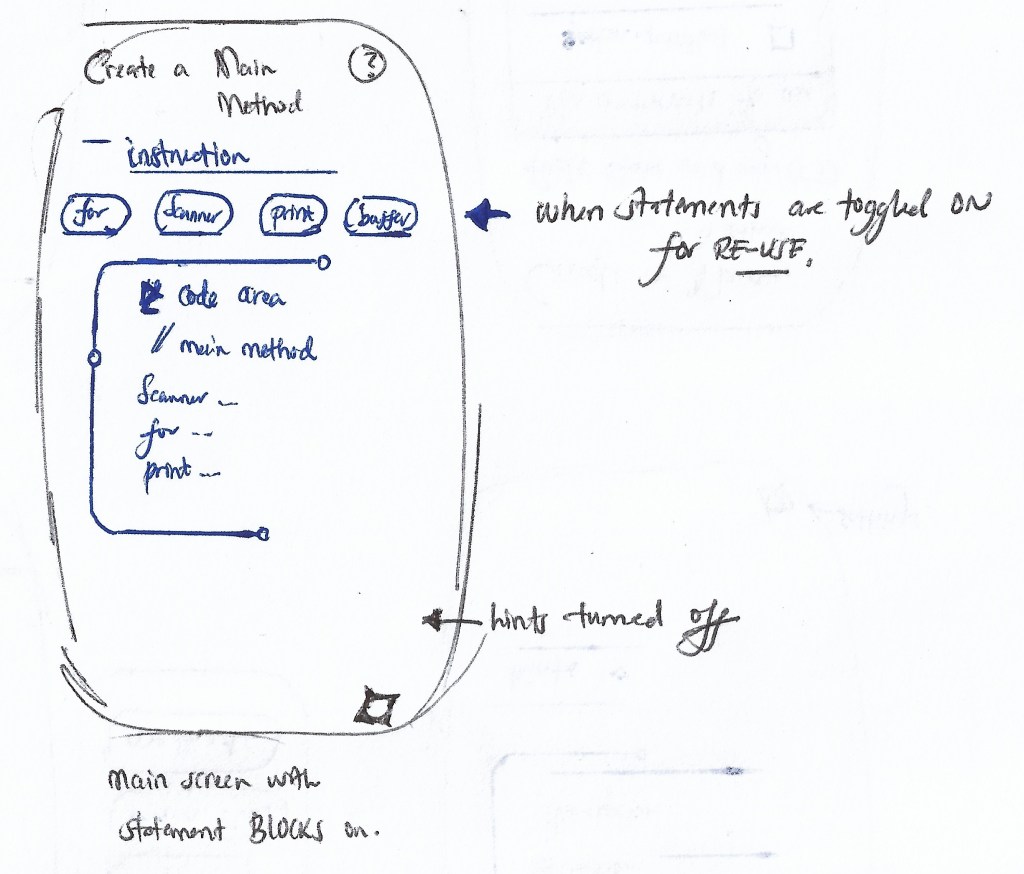 Create a Main
Method
?
instruction
for scanner print buffer
when statements are toggled ON
for RE-USE.
code area
// main method
Scanner _
for --
print --
hints turned off
Main screen with
statement BLOCKS on.